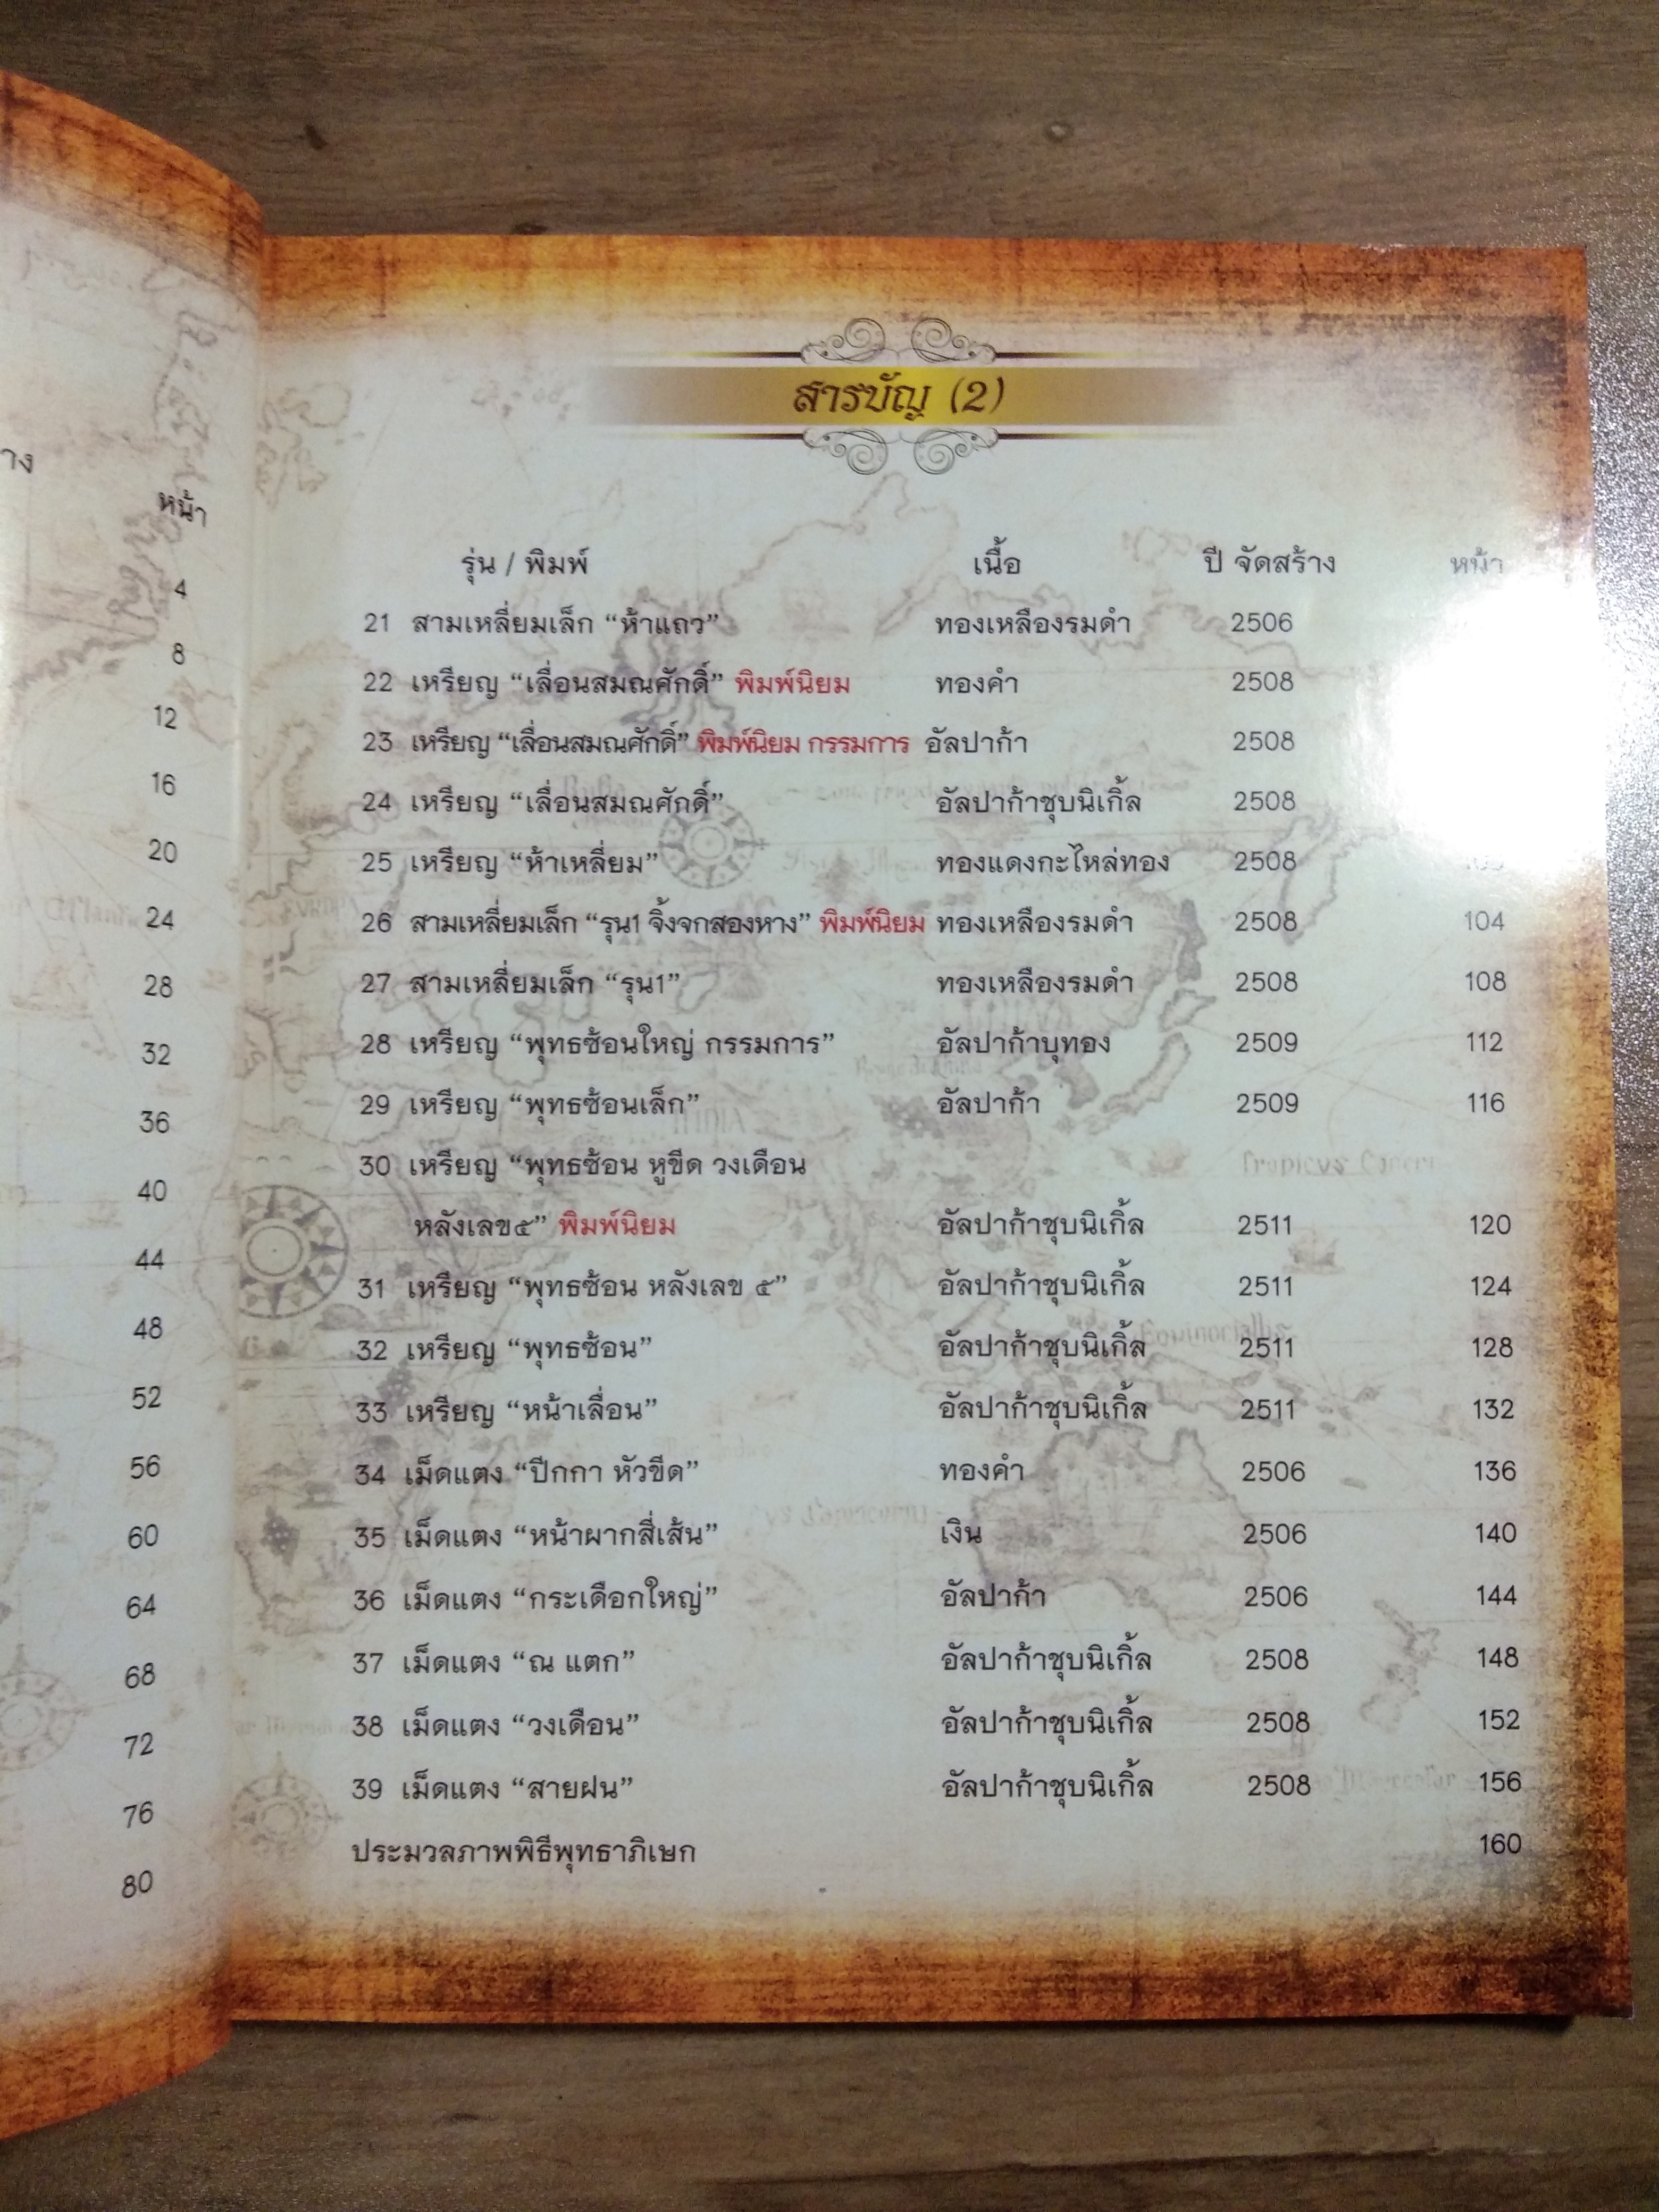 าง
หน้า
4
8
12
16
20
24
28
32
36
40
44
48
52
56
60
64
68
72
76
80
สารบัญ (2)
รุ่น / พิมพ์ เนื้อ ปี จัดสร้าง หน้า
21 สามเหลี่ยมเล็ก “ห้าแถว” ทองเหลืองรมดำ 2506
22 เหรียญ “เลื่อนสมณศักดิ์” พิมพ์นิยม ทองคำ 2508
23 เหรียญ “เลื่อนสมณศักดิ์” พิมพ์นิยม กรรมการ อัลปาก้า 2508
24 เหรียญ “เลื่อนสมณศักดิ์” อัลปาก้าชุบนิเกิ้ล 2508
25 เหรียญ “ห้าเหลี่ยม” ทองแดงกะไหล่ทอง 2508
26 สามเหลี่ยมเล็ก “รุน1 จิ้งจกสองหาง” พิมพ์นิยม ทองเหลืองรมดำ 2508 104
27 สามเหลี่ยมเล็ก “รุน1” ทองเหลืองรมดำ 2508 108
28 เหรียญ “พุทธซ้อนใหญ่ กรรมการ” อัลปาก้าบุทอง 2509 112
29 เหรียญ “พุทธซ้อนเล็ก” อัลปาก้า 2509 116
30 เหรียญ “พุทธซ้อน หูขีด วงเดือน
หลังเลข๕” พิมพ์นิยม อัลปาก้าชุบนิเกิ้ล 2511 120
31 เหรียญ “พุทธซ้อน หลังเลข ๕” อัลปาก้าชุบนิเกิ้ล 2511 124
32 เหรียญ “พุทธซ้อน” อัลปาก้าชุบนิเกิ้ล 2511 128
33 เหรียญ “หน้าเลื่อน” อัลปาก้าชุบนิเกิ้ล 2511 132
34 เม็ดแตง “ปีกกา หัวขีด” ทองคำ 2506 136
35 เม็ดแตง “หน้าผากสี่เส้น” เงิน 2506 140
36 เม็ดแตง “กระเดือกใหญ่” อัลปาก้า 2506 144
37 เม็ดแตง “ณ แตก” อัลปาก้าชุบนิเกิ้ล 2508 148
38 เม็ดแตง “วงเดือน” อัลปาก้าชุบนิเกิ้ล 2508 152
39 เม็ดแตง “สายฝน” อัลปาก้าชุบนิเกิ้ล 2508 156
ประมวลภาพพิธีพุทธาภิเษก 160